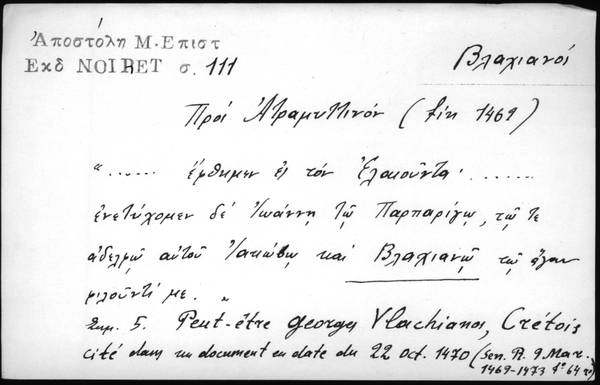 Ἀποστόλη Μ. Επιστ
Εκδ NOIRET σ. 111
Βλαχιανοί
Πρὸς Ἀτραμυττινόν (fin 1469)
"...... ἤρθημεν εἰς τόν Ἐλαιοῦντα.......
ἐνετύχομεν δέ Ἰωάννῃ τῷ Παρπαρίγῳ, τῷ τε
ἀδελφῷ αὐτοῦ Ἰακώβῳ καί Βλαχιανῷ τῷ ἄγαν
φιλοῦντί με. "
Σημ. 5. Peut-être Georges Vlachianos, Crétois
cité dans un document en date du 22 oct. 1470 (Sen. R. 9 Mar.
1469-1473 fº 64 rº)